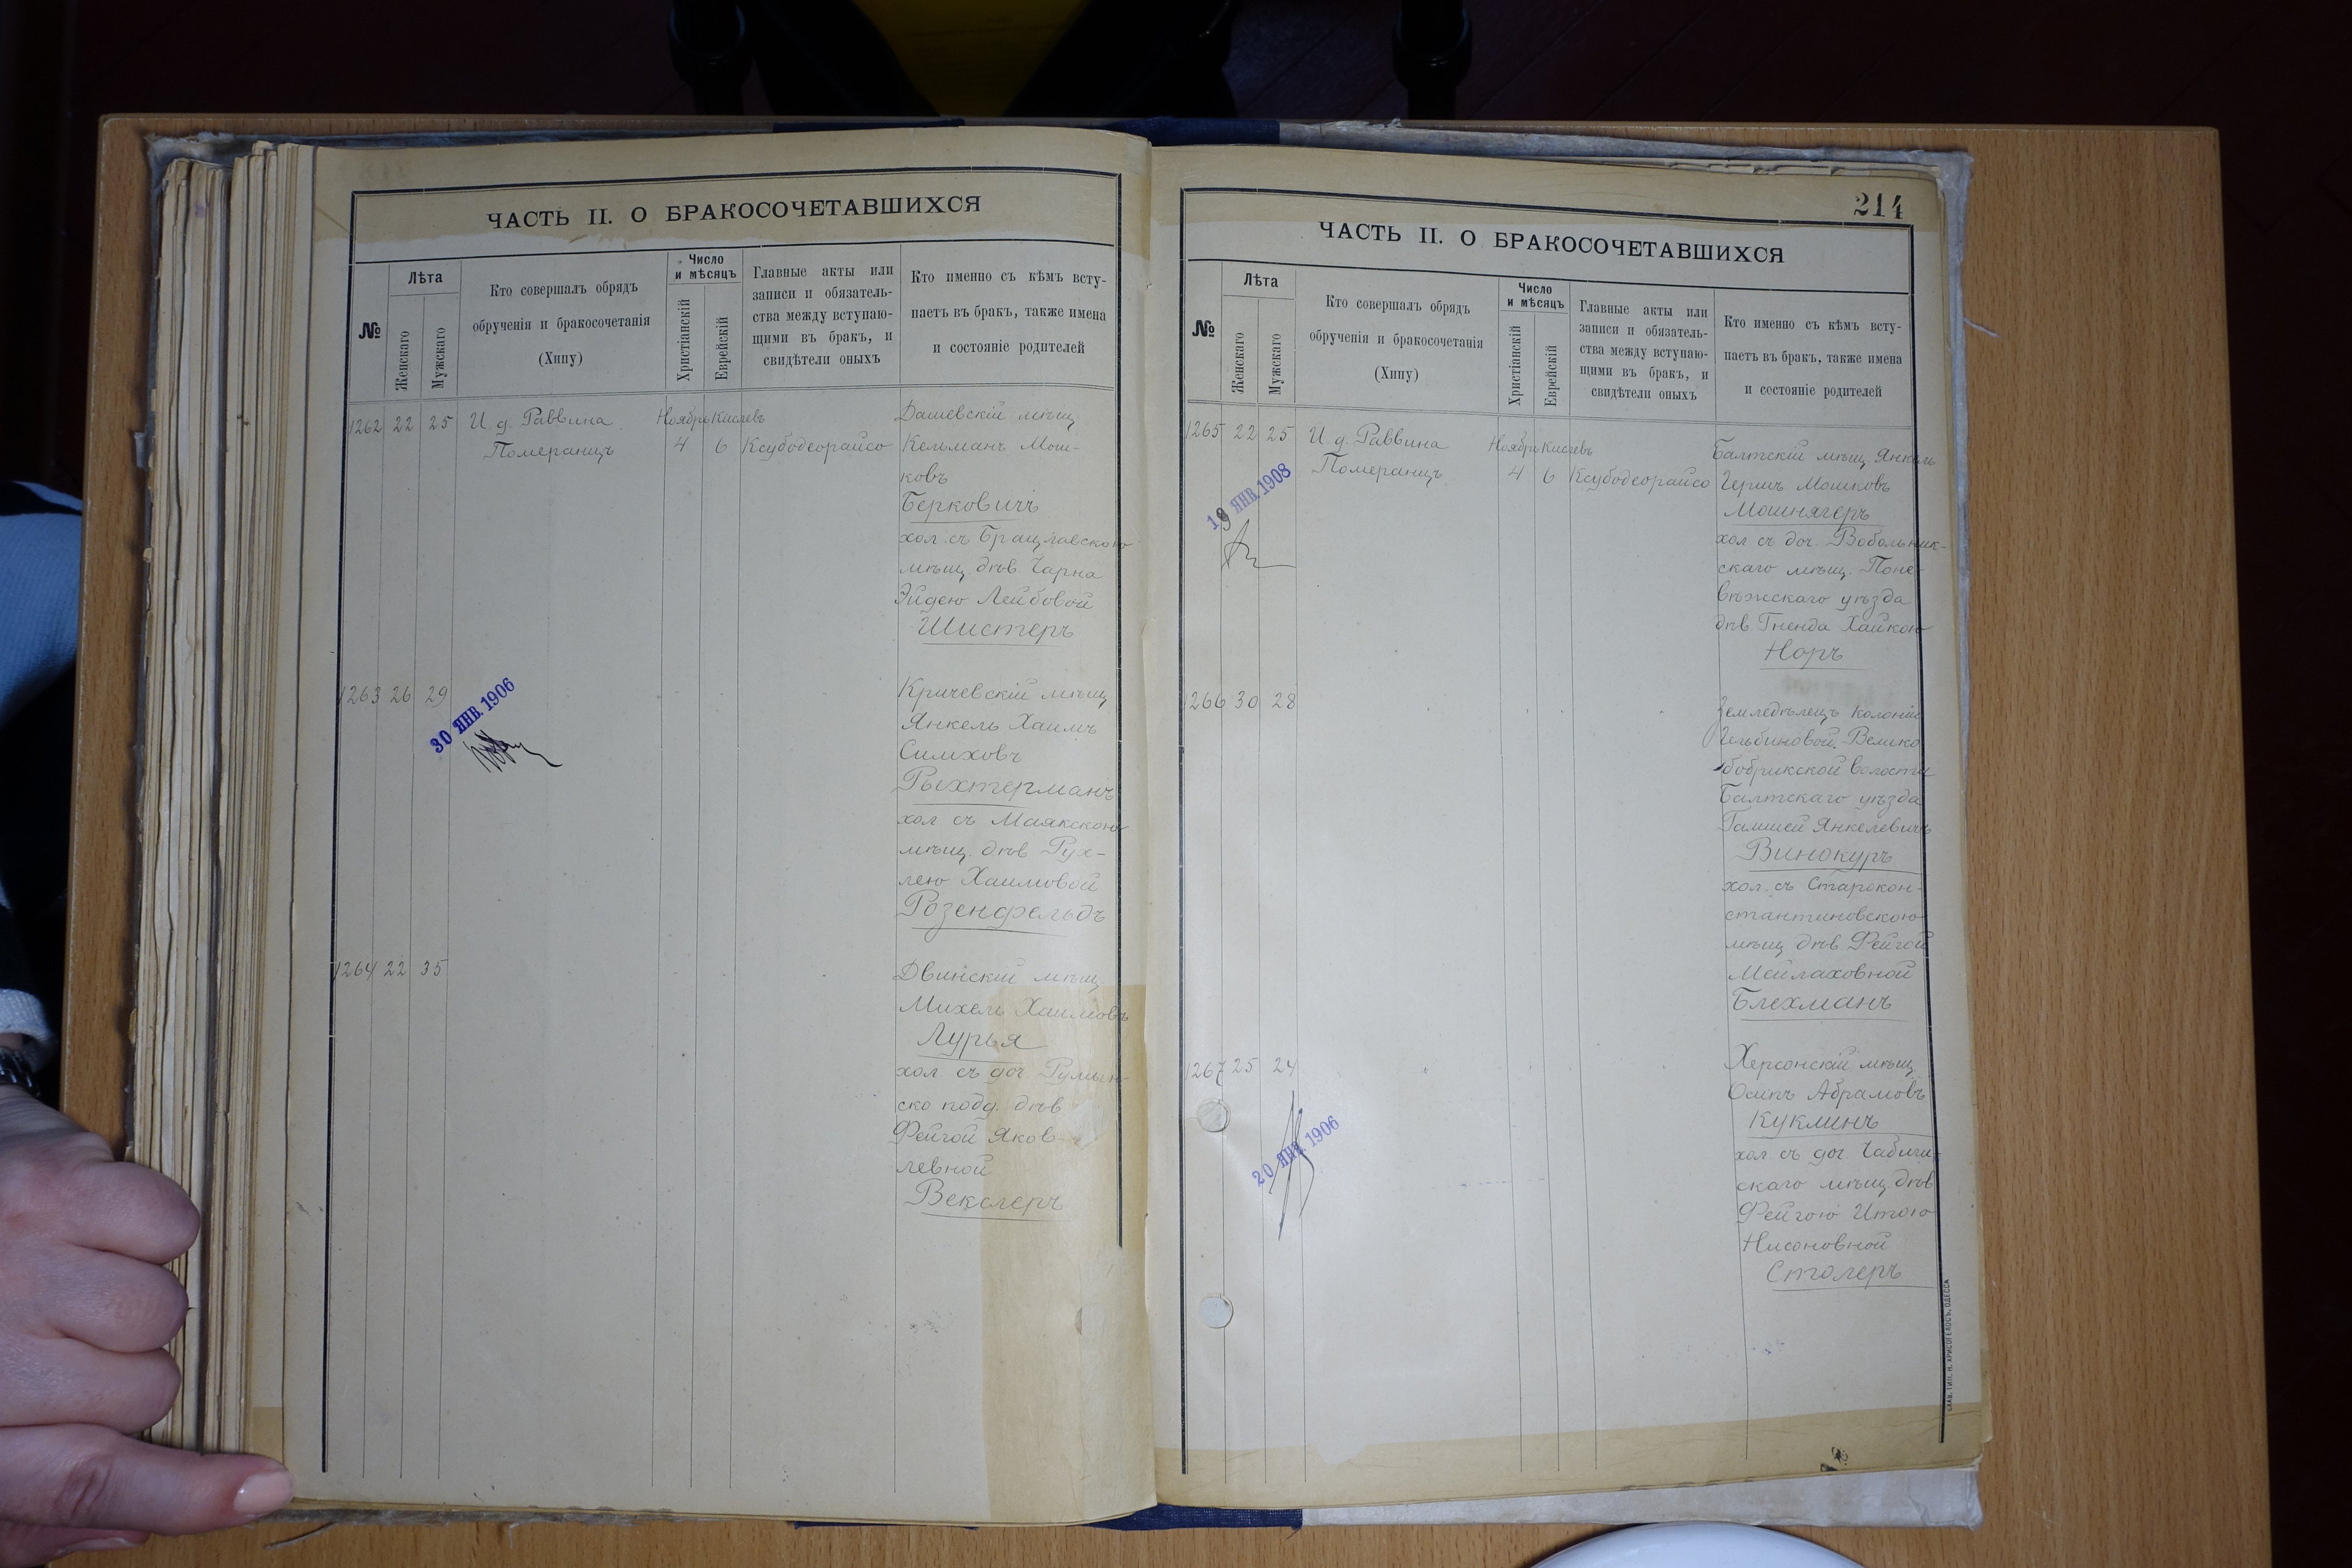 ЧАСТЬ II. О БРАКОСОЧЕТАВШИХСЯ
№
Лѣта
Женскаго
Мужскаго
Кто совершалъ обрядъ
обрученія и бракосочетанія
(Хипу)
Число
и мѣсяцъ
Христіанскій
Еврейскій
Главные акты или
записи и обязатель-
ства между вступаю-
щими въ бракъ, и
свидѣтели оныхъ
Кто именно съ кѣмъ всту-
паетъ въ бракъ, также имена
и состояніе родителей
1262 22 25 И. д. Раввина Ноябрь Кислевъ Дашевскій мѣщ
Померанцъ 4 6 Ксубодеорайсо Кельманъ Мош-
ковъ
Берковичъ
хол. съ Брацлавскою
мѣщ. дѣв. Чарна
Эйдею Лейбовой
Шистеръ
1263 26 29 Кричевскій мѣщ
30 ЯНВ. 1906
Янкель Хаимъ
Симховъ
Рыхтерманъ
хол съ Маякскою
мѣщ. дѣв Рух-
лею Хаимовой
Розенфельдъ
1264 22 35 Двинскій мѣщ.
Михель Хаимовъ
Лурья
хол. съ доч Румын-
ско подд. дѣв
Фейгой Яков-
левной
Векслеръ
214
ЧАСТЬ II. О БРАКОСОЧЕТАВШИХСЯ
№
Лѣта
Женскаго
Мужскаго
Кто совершалъ обрядъ
обрученія и бракосочетанія
(Хипу)
Число
и мѣсяцъ
Христіанскій
Еврейскій
Главные акты или
записи и обязатель-
ства между вступаю-
щими въ бракъ, и
свидѣтели оныхъ
Кто именно съ кѣмъ всту-
паетъ въ бракъ, также имена
и состояніе родителей
1265 22 25 И. д. Раввина Ноябрь Кислевъ Балтскій мѣщ. Янкель
Померанцъ 4 6 Ксубодеорайсо Гершъ Мошковъ
19 ЯНВ. 1908
Мошнягеръ
хол съ доч. Вобольник-
скаго мѣщ. Поне-
вѣжскаго уѣзда
дѣв. Гненда Хайкою
Норъ
1266 30 28 Земледѣлецъ колоніи
Гельбиновой. Велико
бобрикской волости
Балтскаго уѣзда
Гамшей Янкелевичъ
Винокуръ
хол. съ Старокон-
стантиновскою
мѣщ дѣв Фейгой
Мейлаховной
Блехманъ
1267 25 24 Херсонскій мѣщ
Осипъ Абрамовъ
Куклинъ
20 ЯНВ. 1906
хол. съ доч.
скаго мѣщ дѣв
Фейгою Итою
Нисоновной
Столеръ
СЛАВ. ТИП. Н. ХРИСОГЕЛОСЪ, ОДЕССА